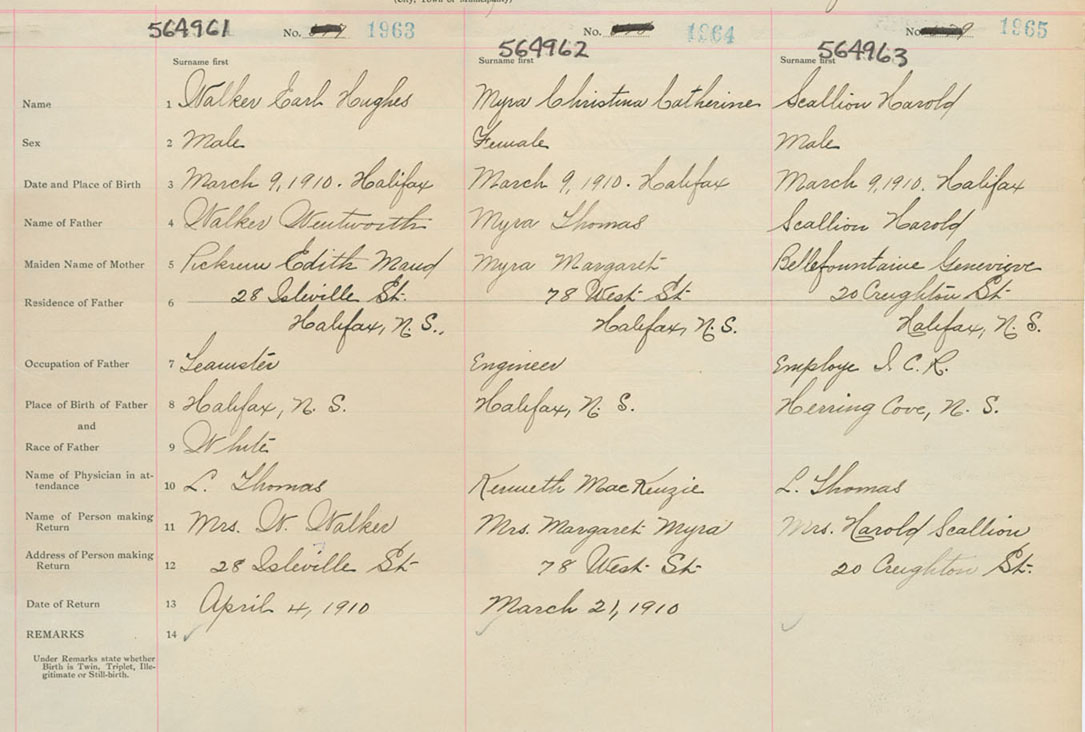 (City, Town or Municipality)
564961 No. 1963 564962 No. 1964 564963 No. 1965
Surname first Surname first Surname first
Name 1 Walker Earl Hughes Myra Christina Catherine Scallion Harold
Sex 2 Male Female Male
Date and Place of Birth 3 March 9, 1910. Halifax March 9, 1910. Halifax March 9, 1910. Halifax
Name of Father 4 Walker Wentworth Myra Thomas Scallion Harold
Maiden Name of Mother 5 Pickrem Edith Maud Myra Margaret Bellefountaine Genevieve
Residence of Father 6 28 Isleville St. 78 West St. 20 Creighton St.
Halifax, N.S., Halifax, N.S. Halifax, N.S.
Occupation of Father 7 Teamster Engineer Employe I.C.R.
Place of Birth of Father 8 Halifax, N.S. Halifax, N.S. Herring Cove, N.S.
and
Race of Father 9 White
Name of Physician in at-
tendance 10 L. Thomas Kenneth MacKenzie L. Thomas
Name of Person making
Return 11 Mrs. W. Walker Mrs. Margaret Myra Mrs. Harold Scallion
Address of Person making
Return 12 28 Isleville St. 78 West St. 20 Creighton St.
Date of Return 13 April 4, 1910 March 21, 1910
REMARKS 14
Under Remarks state whether
Birth is Twin, Triplet, Ille-
gitimate or Still-birth.